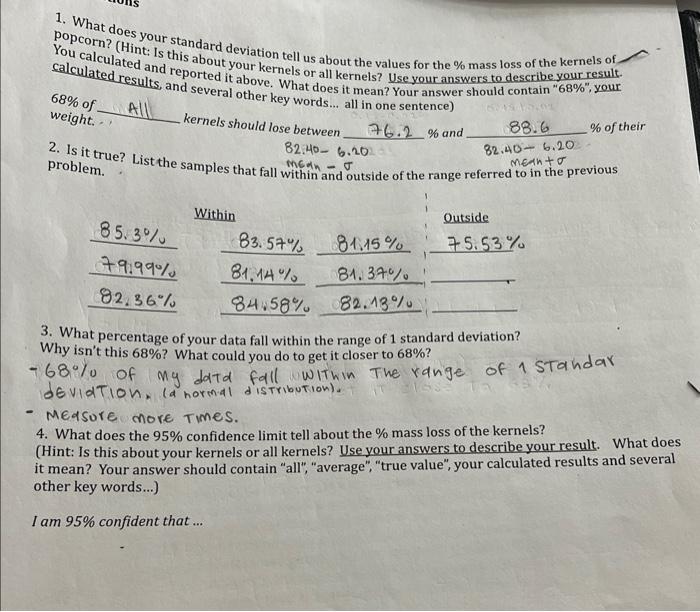 1. What does your standard deviation tell us about the values for the % mass loss of the kernels of
popcorn? (Hint: Is this about your kernels or all kernels? Use your answers to describe your result.
You calculated and reported it above. What does it mean? Your answer should contain "68%", your
calculated results, and several other key words... all in one sentence)
68% of All kernels should lose between 76.2 % and 88.6 % of their
weight.
82.40 - 6.20 82.40 + 6.20
mean - σ mean + σ
2. Is it true? List the samples that fall within and outside of the range referred to in the previous
problem.
Within Outside
85.3% 83.57% 81.15% 75.53%
79.99% 81.14% 81.37%
82.36% 84.58% 82.13%
3. What percentage of your data fall within the range of 1 standard deviation?
Why isn't this 68%? What could you do to get it closer to 68%?
- 68% of my data fall within the range of 1 standar
deviation. (a normal distribution).
- Measure more times.
4. What does the 95% confidence limit tell about the % mass loss of the kernels?
(Hint: Is this about your kernels or all kernels? Use your answers to describe your result. What does
it mean? Your answer should contain "all", "average", "true value", your calculated results and several
other key words...)
I am 95% confident that ...